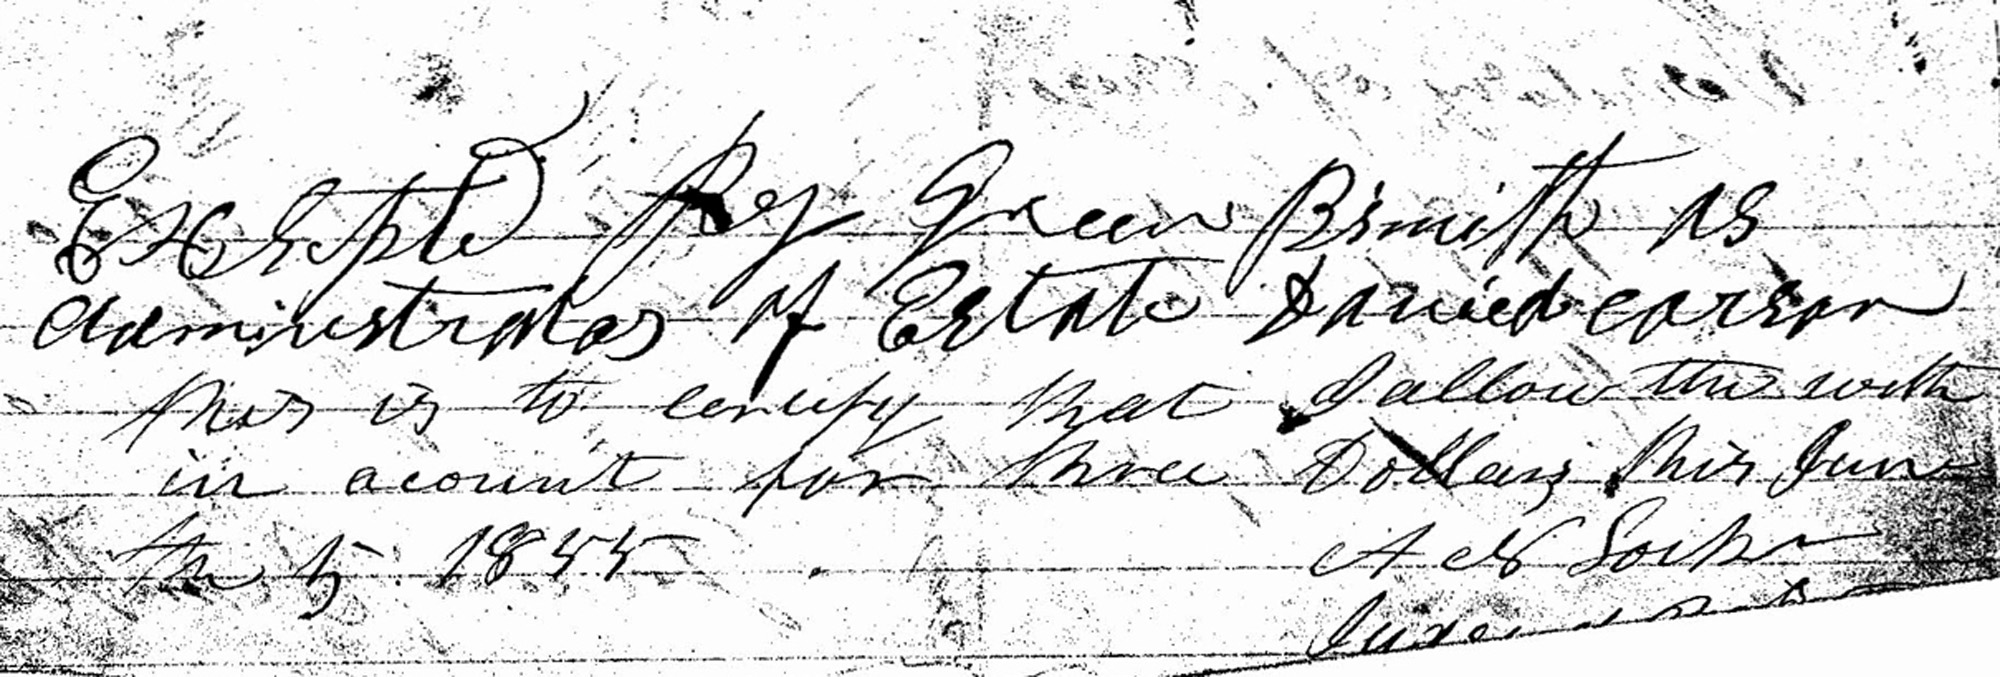 Exsepted By Green B Smith as
Administrator of Estate David Carson
this is to certify that I allow the with
in acount for three Dollars this Jun
the 5 1855
A N
Judge